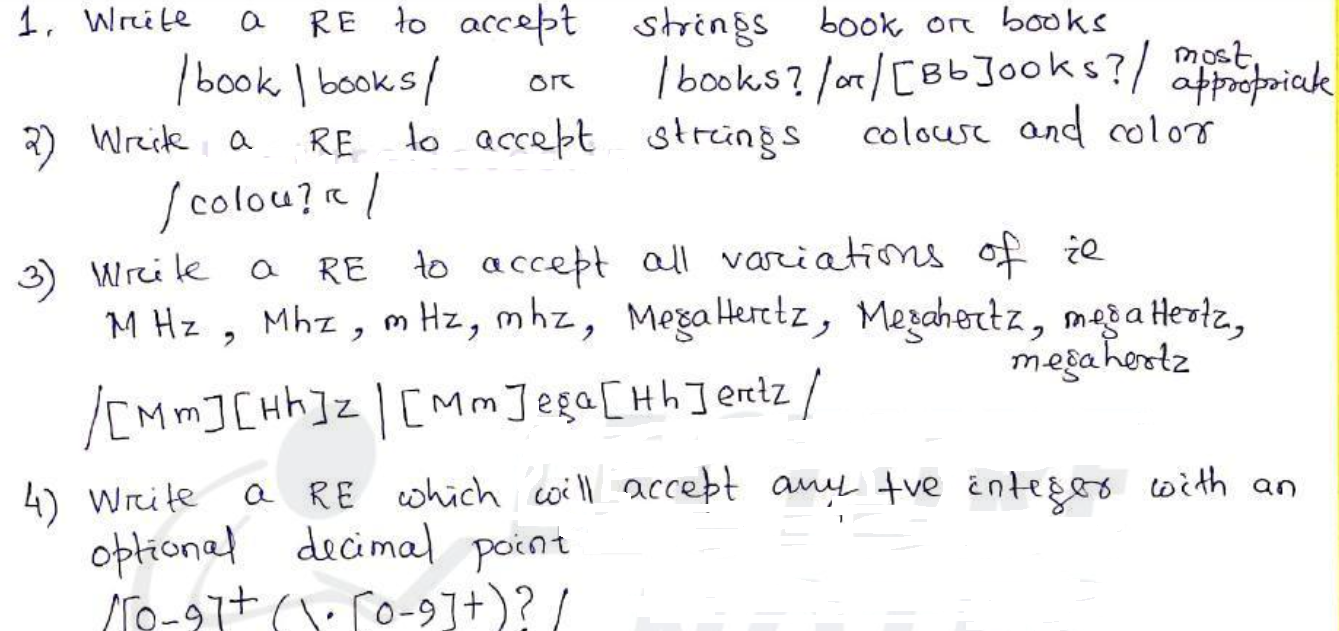 1. Write a RE to accept strings book or books
/book | books/ or /books?/ or /[Bb]ooks?/ most appropriate
2) Write a RE to accept strings colour and color
/colou?r/
3) Write a RE to accept all variations of ie
MHz, Mhz, mHz, mhz, MegaHertz, Megahertz, megaHertz,
megahertz
/[Mm][Hh]z | [Mm]ega[Hh]ertz/
4) Write a RE which will accept any +ve integer with an
optional decimal point
/[0-9]+(\.[0-9]+)?/